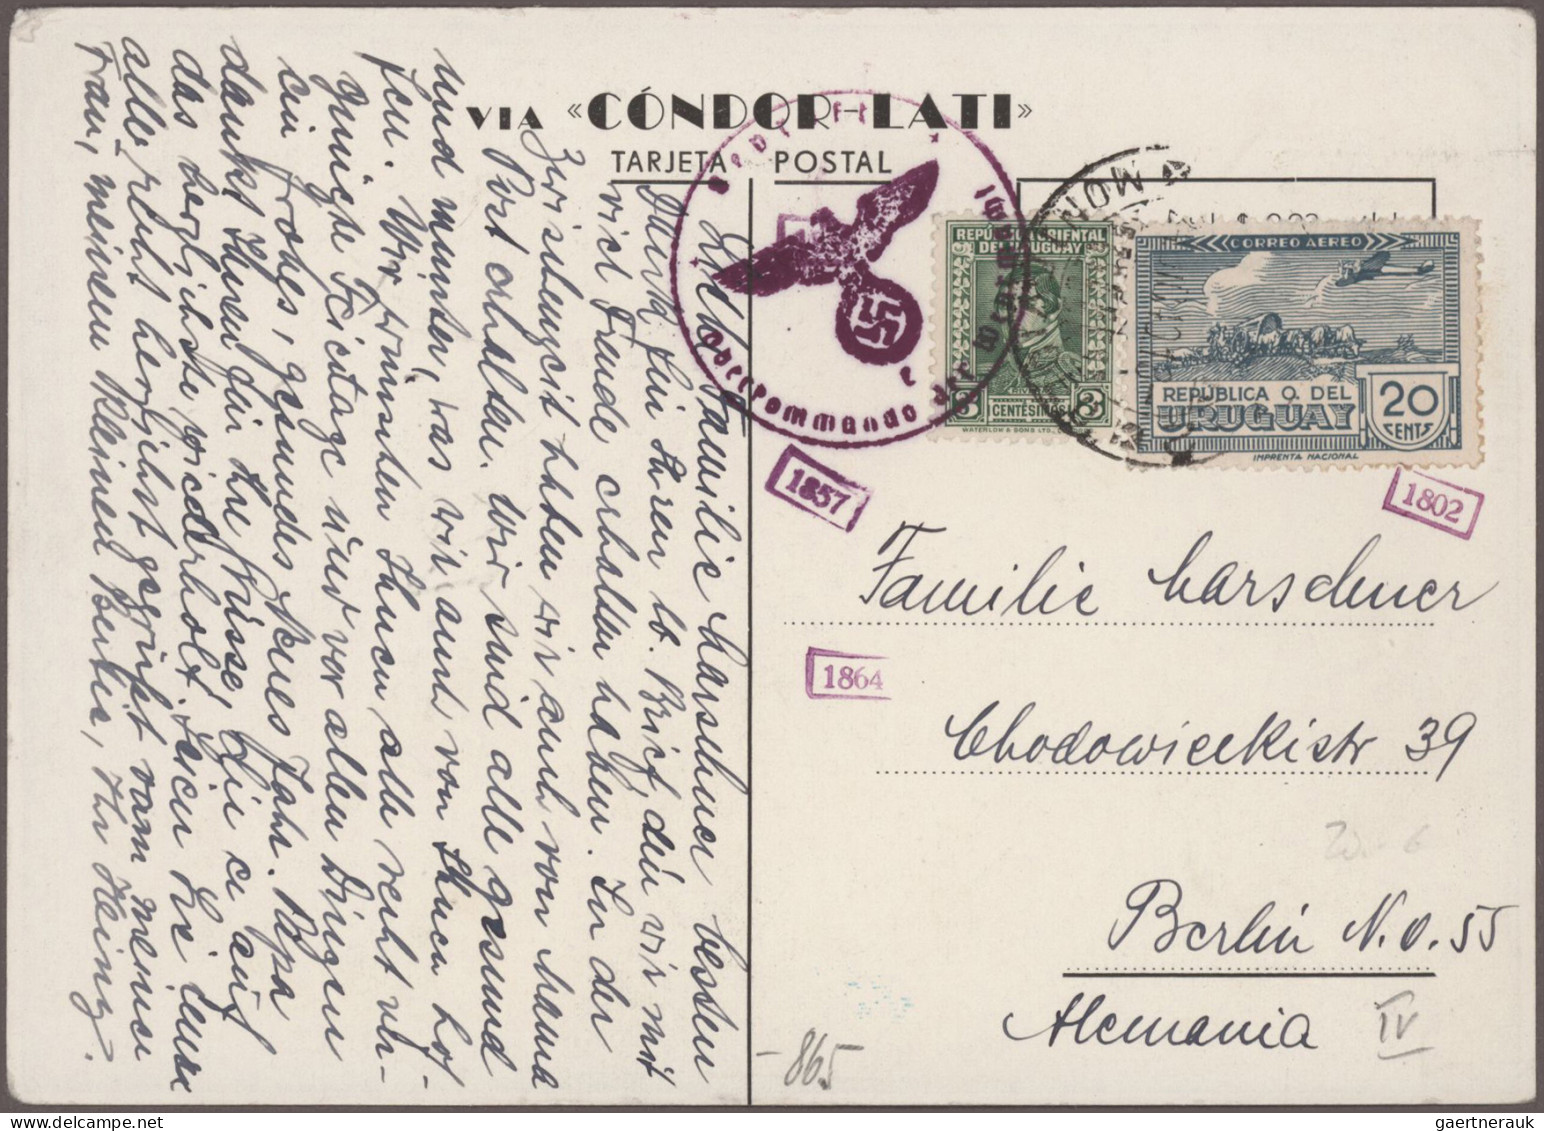 VIA «CÓNDOR-LATI»
TARJETA POSTAL
Geprüft
Oberkommando der Wehrmacht
e
REPÚBLICA ORIENTAL
DEL URUGUAY
3 CENTÉSIMOS 3
WATERLOW & SONS LTD.,
MON
CORREO AÉREO
REPÚBLICA O. DEL
URUGUAY
20
CENTS
IMPRENTA NACIONAL
1857
1802
1864
Familie Marschner
Chodowieckistr 39
Berlin N.O. 55
Alemania
IV
-865
Familie Marschner besten
Dank für Ihren lb. Brief, den wir mit
viel Freude erhalten haben. In der
Zwischenzeit haben wir auch von Mama
Post erhalten. Wir sind alle gesund
und munter, was wir auch von Ihnen hof-
fen. Wir wünschen Ihnen alle recht ver-
gnügte Feiertage und vor allen Dingen
ein frohes, gesundes Neues Jahr. Papa
dankt Ihnen für die Grüsse, die er auf
das herzlichste wiederholt. Seien Sie
alle recht herzlichst gegrüßt von meiner
Frau, meinem kleinen Bertie, Ihr Heinz.
gaertnerauk